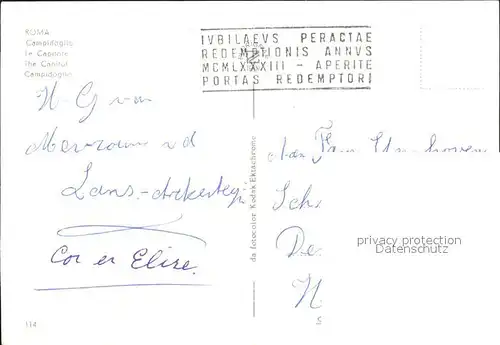 ROMA
Campidoglio
Le Capitole
The Capitol
Campidoglio
IVBILAEVS PERACTAE
REDEMPTIONIS ANNVS
MCMLXXXIII - APERITE
PORTAS REDEMPTORI
H G van
Cor en Elise.
da fotocolor Kodak Ektachrome
Aan Fam
Sch
De
N
privacy protection
Datenschutz
114
S